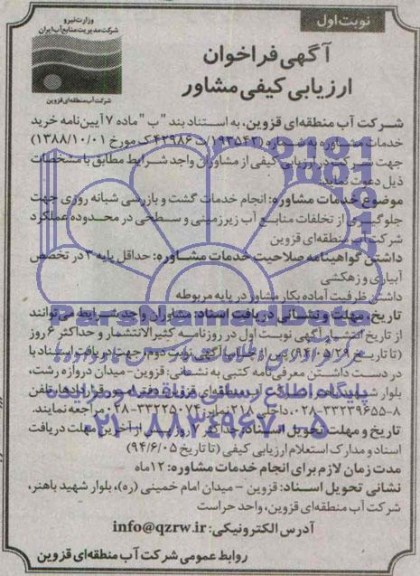 نوبت اول
وزارت نیرو
شرکت مدیریت منابع آب ایران
شرکت آب منطقه‌ای قزوین
آگهی فراخوان
ارزیابی کیفی مشاور
شرکت آب منطقه‌ای قزوین، به استناد بند "ب" ماده ۷ آیین‌نامه خرید
خدمات مشاوره به شماره (۱۹۳۵۴۲/ت ۴۲۹۸۶ ک مورخ ۱۳۸۸/۱۰/۰۱)
جهت شرکت در ارزیابی کیفی از مشاوران واجد شرایط مطابق با مشخصات
ذیل دعوت نماید.
موضوع خدمات مشاوره: انجام خدمات گشت و بازرسی شبانه روزی جهت
جلوگیری از تخلفات منابع آب زیرزمینی و سطحی در محدوده عملکرد
شرکت آب منطقه‌ای قزوین
داشتن گواهینامه صلاحیت خدمات مشاوره: حداقل پایه ۳ در تخصص
آبیاری و زهکشی
داشتن ظرفیت آماده بکار مشاور در پایه مربوطه
تاریخ، مهلت و نشانی دریافت اسناد: مشاوران واجد شرایط می‌توانند
از تاریخ انتشار آگهی نوبت اول در روزنامه کثیرالانتشار و حداکثر ۶ روز
(تا تاریخ ۹۴/۰۵/۲۹) پس از آگهی نوبت دوم، جهت دریافت اسناد با
در دست داشتن معرفی‌نامه کتبی به نشانی: قزوین- میدان دروازه رشت،
بلوار شهید آب منطقه‌ای قزوین، دفتر قراردادها، تلفن
۰۲۸-۳۳۲۳۹۶۵۵-۸ داخلی ۲۱۸ نمابر: ۰۲۸-۳۳۲۲۵۰۷۴ مراجعه نمایند.
تاریخ و مهلت تحویل اسناد: حداکثر ۷ روز پس از آخرین مهلت دریافت
اسناد و مدارک استعلام ارزیابی کیفی (تا تاریخ ۹۴/۶/۰۵)
مدت زمان لازم برای انجام خدمات مشاوره: ۱۲ ماه
نشانی تحویل اسناد: قزوین - میدان امام خمینی (ره)، بلوار شهید باهنر،
شرکت آب منطقه‌ای قزوین، واحد حراست
آدرس الکترونیکی: info@qzrw.ir
روابط عمومی شرکت آب منطقه‌ای قزوین
ParsNamadData
پایگاه اطلاع رسانی مناقصه و مزایده
۰۲۱-۸۸۳۴۹۶۷۰-۵